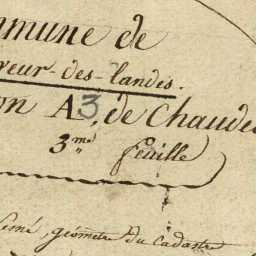 mmune de
veur-des-landes.
on A3, de Chaude
3.me feuille
géomètre du Cadastre